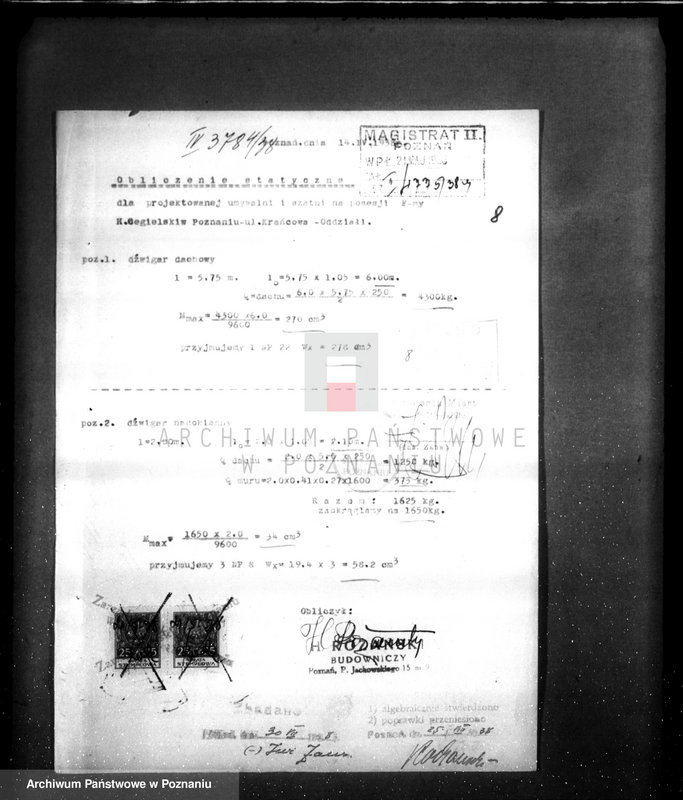 IV 3784/38 Poznań.dnia 14.IV.1938
MAGISTRAT II.
POZNAŃ
WPŁ. 21 MAJ 1938
8
Obliczenie statyczne
dla projektowanej umywalni i szatni na posesji F-my
H.Cegielskiw Poznaniu-ul.Krańcowa -Oddziałi.
poz.1. dźwigar dachowy
l = 5.75 m. l₀=5.75 x 1.05 = 6.00m.
q=dachu= 6.0 x 5.75 x 250 / 2 = 4300kg.
Mmax= 4300 x6.0 / 9600 = 270 cm³
przyjmujemy 1 NP 22 Wx = 278 cm³
8
poz.2. dźwigar nadokienny
= 2.10m.
q dachu = 2.0 x 5.0 x 250 / 2 = 1250 kg.
q muru=2.0x0.41x0.27x1600 = 375 kg.
Razem: 1625 kg.
zaokrąglamy na 1650kg.
Mmax= 1650 x 2.0 / 9600 = 34 cm³
przyjmujemy 3 NP 8 Wx= 19.4 x 3 = 58.2 cm³
ARCHIWUM PAŃSTWOWE
W POZNANIU
Obliczył:
BUDOWNICZY
Poznań, P. Jackowskiego 15 m.
25
25
Zbadano
1) algebraicznie stwierdzono
2) poprawki przeniesiono
Poznań, dn.
Archiwum Państwowe w Poznaniu